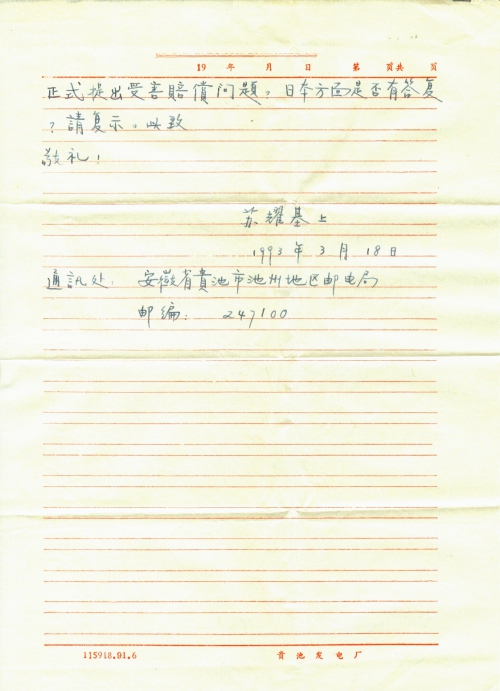 19 年 月 日 第 页共 页
正式提出受害賠償问題。日本方面是否有答复
？請复示。此致
敬礼！
苏耀基上
1993年3月18日
通訊处：安徽省貴池市池州地区邮电局
邮编：247100
115918.91.6 贵池发电厂